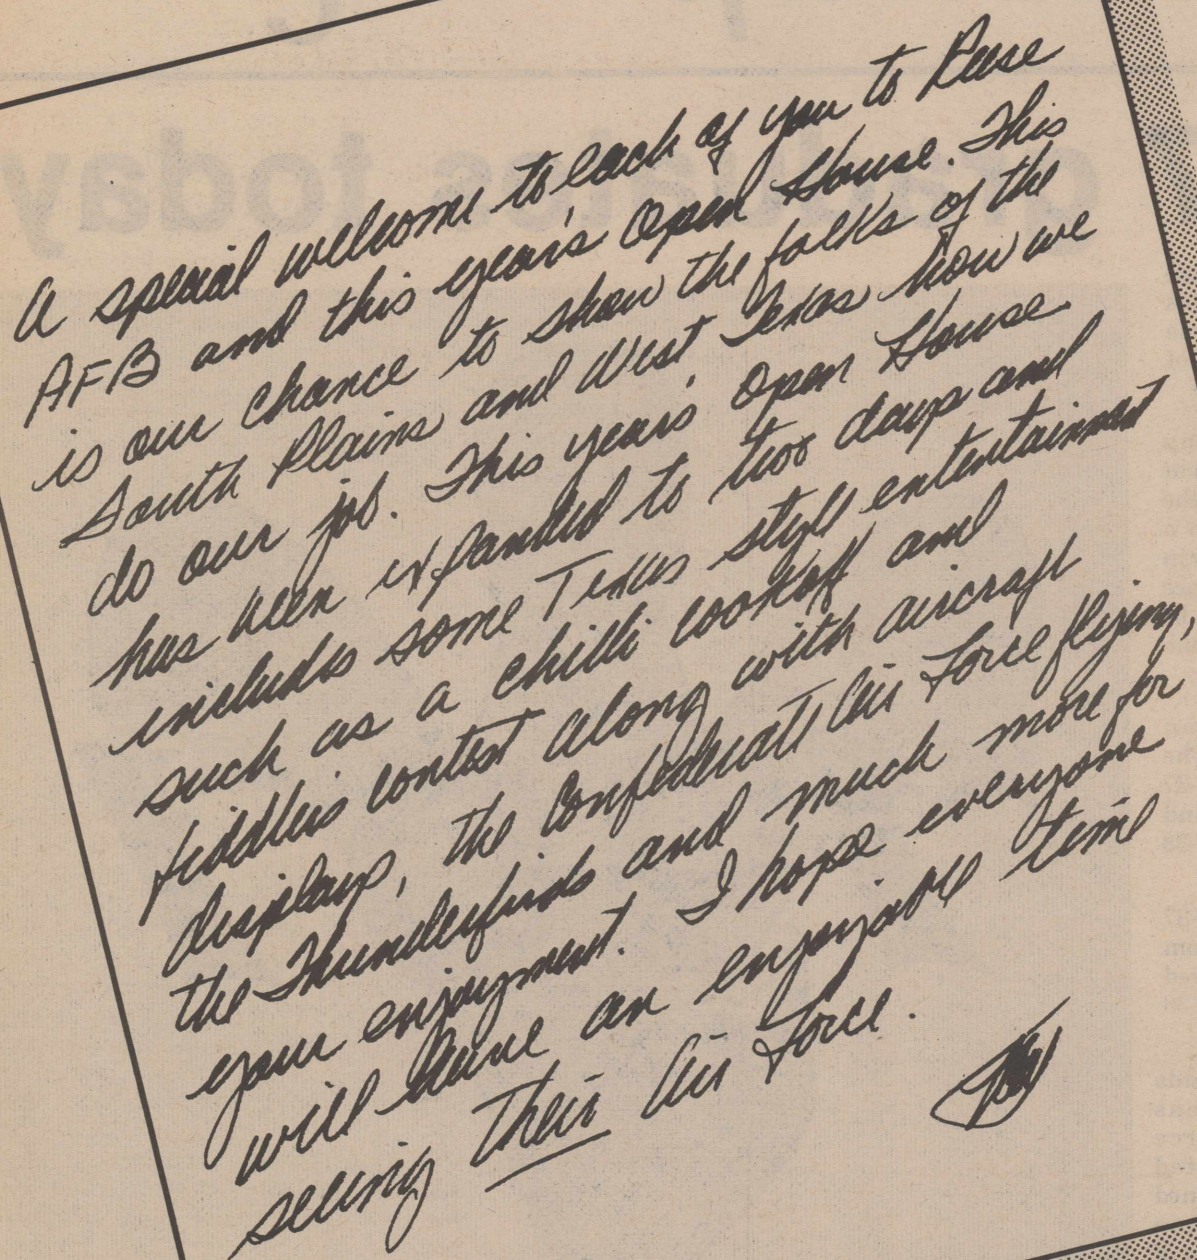 A special welcome to each of you to Reese
AFB and this year's Open House. This
is our chance to show the folks of the
South Plains and West Texas how we
do our job. This years' Open House
has been expanded to two days and
includes some Texas style entertainment
such as a chilli cookoff and
fiddlers contest along with aircraft
displays, the Confederate Air Force flying,
the Thunderbirds and much more for
your enjoyment. I hope everyone
will have an enjoyable time
seeing their Air Force.